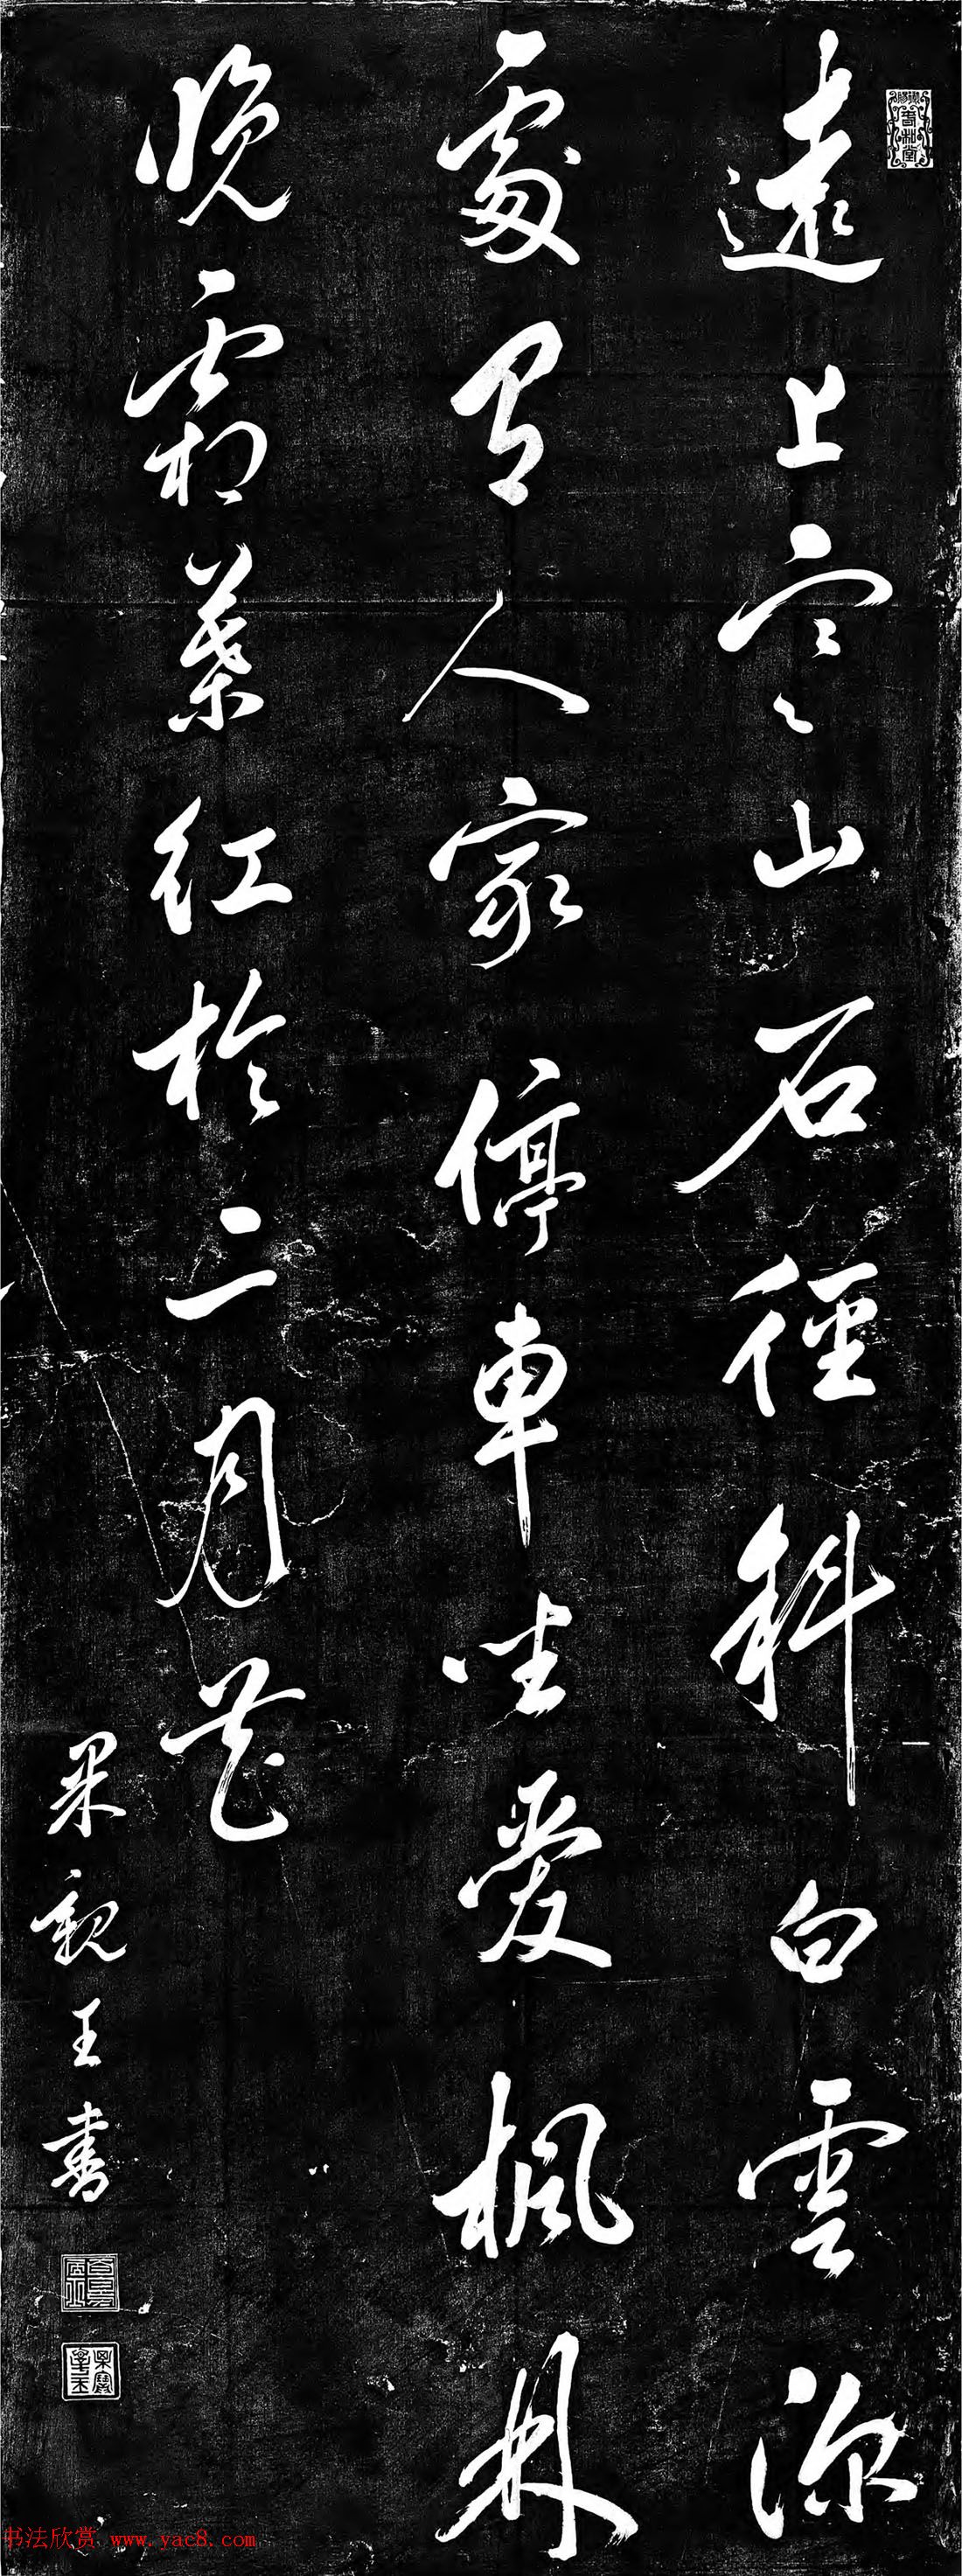 遠上寒山石徑斜白雲深
處有人家停車坐愛楓林
晚霜葉紅於二月花
果親王書
书法欣赏 www.yac8.com